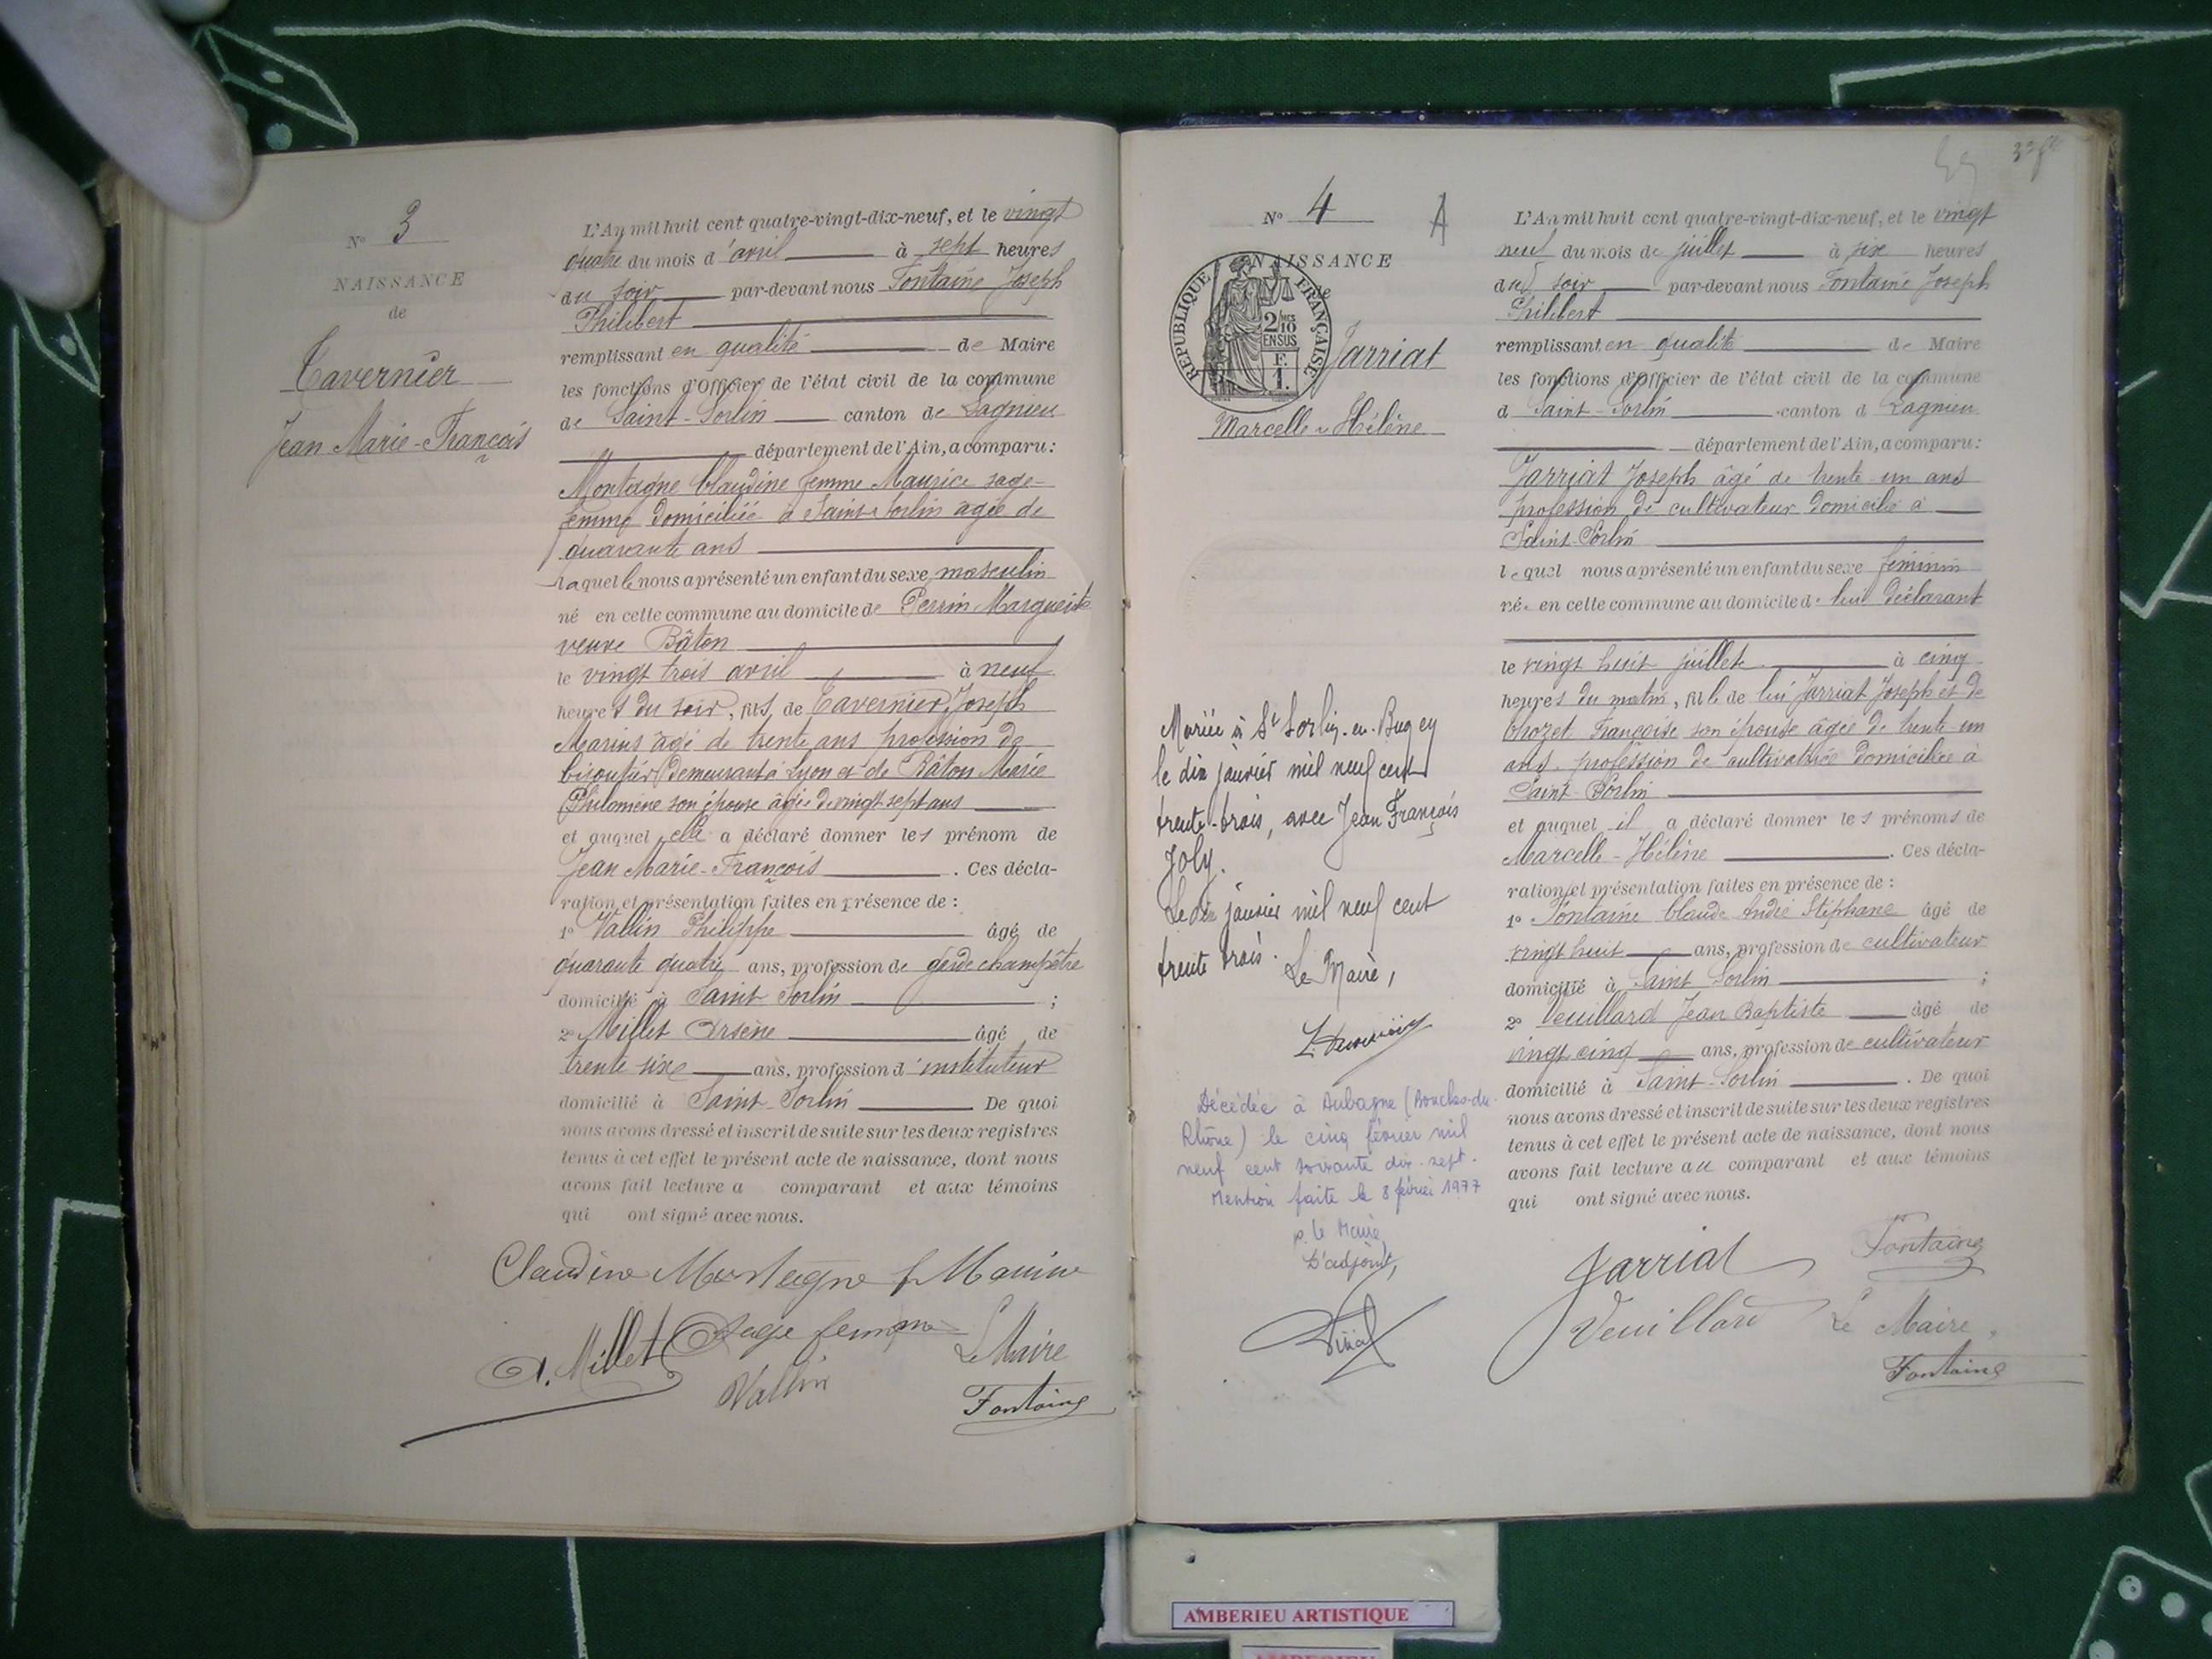 N° 3
NAISSANCE
de
Tavernier
Jean Marie-François
L'An mil huit cent quatre-vingt-dix-neuf, et le vingt
quatre du mois d'avril à sept heures
du soir par-devant nous Fontaine Joseph
Philibert
remplissant en qualité de Maire
les fonctions d'Officier de l'état civil de la commune
de Saint-Sorlin canton de Lagnieu
département de l'Ain, a comparu:
Montagne Claudine femme Maurice sage-
femme domiciliée à Saint-Sorlin âgée de
quarante ans
laquelle nous a présenté un enfant du sexe masculin
né en cette commune au domicile de Perrin Marguerite
veuve Bâton
le vingt trois avril à neuf
heures du soir, fils de Tavernier Joseph
Marius âgé de trente ans profession de
bijoutier demeurant à Lyon et de Bâton Marie
Philomène son épouse âgée de vingt sept ans
et auquel elle a déclaré donner les prénom de
Jean Marie-François. Ces décla-
ration et présentation faites en présence de :
1° Vallin Philippe âgé de
quarante quatre ans, profession de garde champêtre
domicilié à Saint Sorlin ;
2° Millet Arsène âgé de
trente six ans, profession d'instituteur
domicilié à Saint-Sorlin De quoi
nous avons dressé et inscrit de suite sur les deux registres
tenus à cet effet le présent acte de naissance, dont nous
avons fait lecture a comparant et aux témoins
qui ont signé avec nous.
Claudine Montagne f Maurice
A. Millet Sage femme Le Maire
Vallin Fontaine
N° 4 A
NAISSANCE
de
REPUBLIQUE FRANÇAISE
2/10 EN SUS
F. 1.
Jarriat
Marcelle-Hélène
Mariée à St Sorlin-en-Bugey
le dix janvier mil neuf cent
trente-trois, avec Jean François
Joly.
Le dix janvier mil neuf cent
trente trois.
Le Maire,
Décédée à Aubagne (Bouches-du-
Rhône) le cinq février mil
neuf cent soixante dix-sept.
Mention faite le 8 février 1977
p. le Maire
L'adjoint,
L'An mil huit cent quatre-vingt-dix-neuf, et le vingt
neuf du mois de juillet à six heures
du soir par-devant nous Fontaine Joseph
Philibert
remplissant en qualité de Maire
les fonctions d'Officier de l'état civil de la commune
d Saint-Sorlin canton d Lagnieu
département de l'Ain, a comparu:
Jarriat Joseph âgé de trente un ans
profession de cultivateur domicilié à
Saint-Sorlin
lequel nous a présenté un enfant du sexe féminin
née en cette commune au domicile de lui déclarant
le vingt huit juillet à cinq
heures du matin, fille de lui Jarriat Joseph et de
Crozet Françoise son épouse âgée de trente-un
ans profession de cultivatrice domiciliée à
Saint-Sorlin
et auquel il a déclaré donner les prénoms de
Marcelle-Hélène. Ces décla-
ration et présentation faites en présence de :
1° Fontaine Claude André Stéphane âgé de
vingt huit ans, profession de cultivateur
domicilié à Saint Sorlin ;
2° Veuillard Jean Baptiste âgé de
vingt cinq ans, profession de cultivateur
domicilié à Saint-Sorlin. De quoi
nous avons dressé et inscrit de suite sur les deux registres
tenus à cet effet le présent acte de naissance, dont nous
avons fait lecture au comparant et aux témoins
qui ont signé avec nous.
Jarriat Fontaine
Veuillard Le Maire,
Fontaine
AMBERIEU ARTISTIQUE